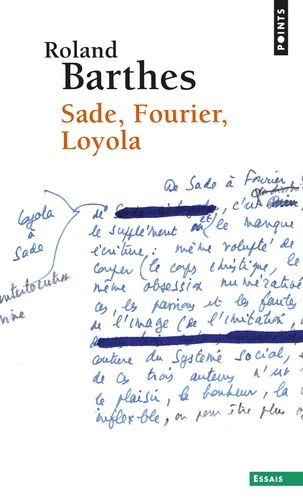 Roland
Barthes
Sade, Fourier,
Loyola
POINTS
De Sade à Fourier,
de c'est
le supplément le manque
écriture : même volupté de
couper (le corps christique, le
même obsession numérative
les passions et les fautes
de l'image (de l'imitation,
couture du Système social,
de ces trois auteurs n'
le plaisir, le bonheur, la
inflexible, ou pour être plus
Loyola
à
Sade
Essais